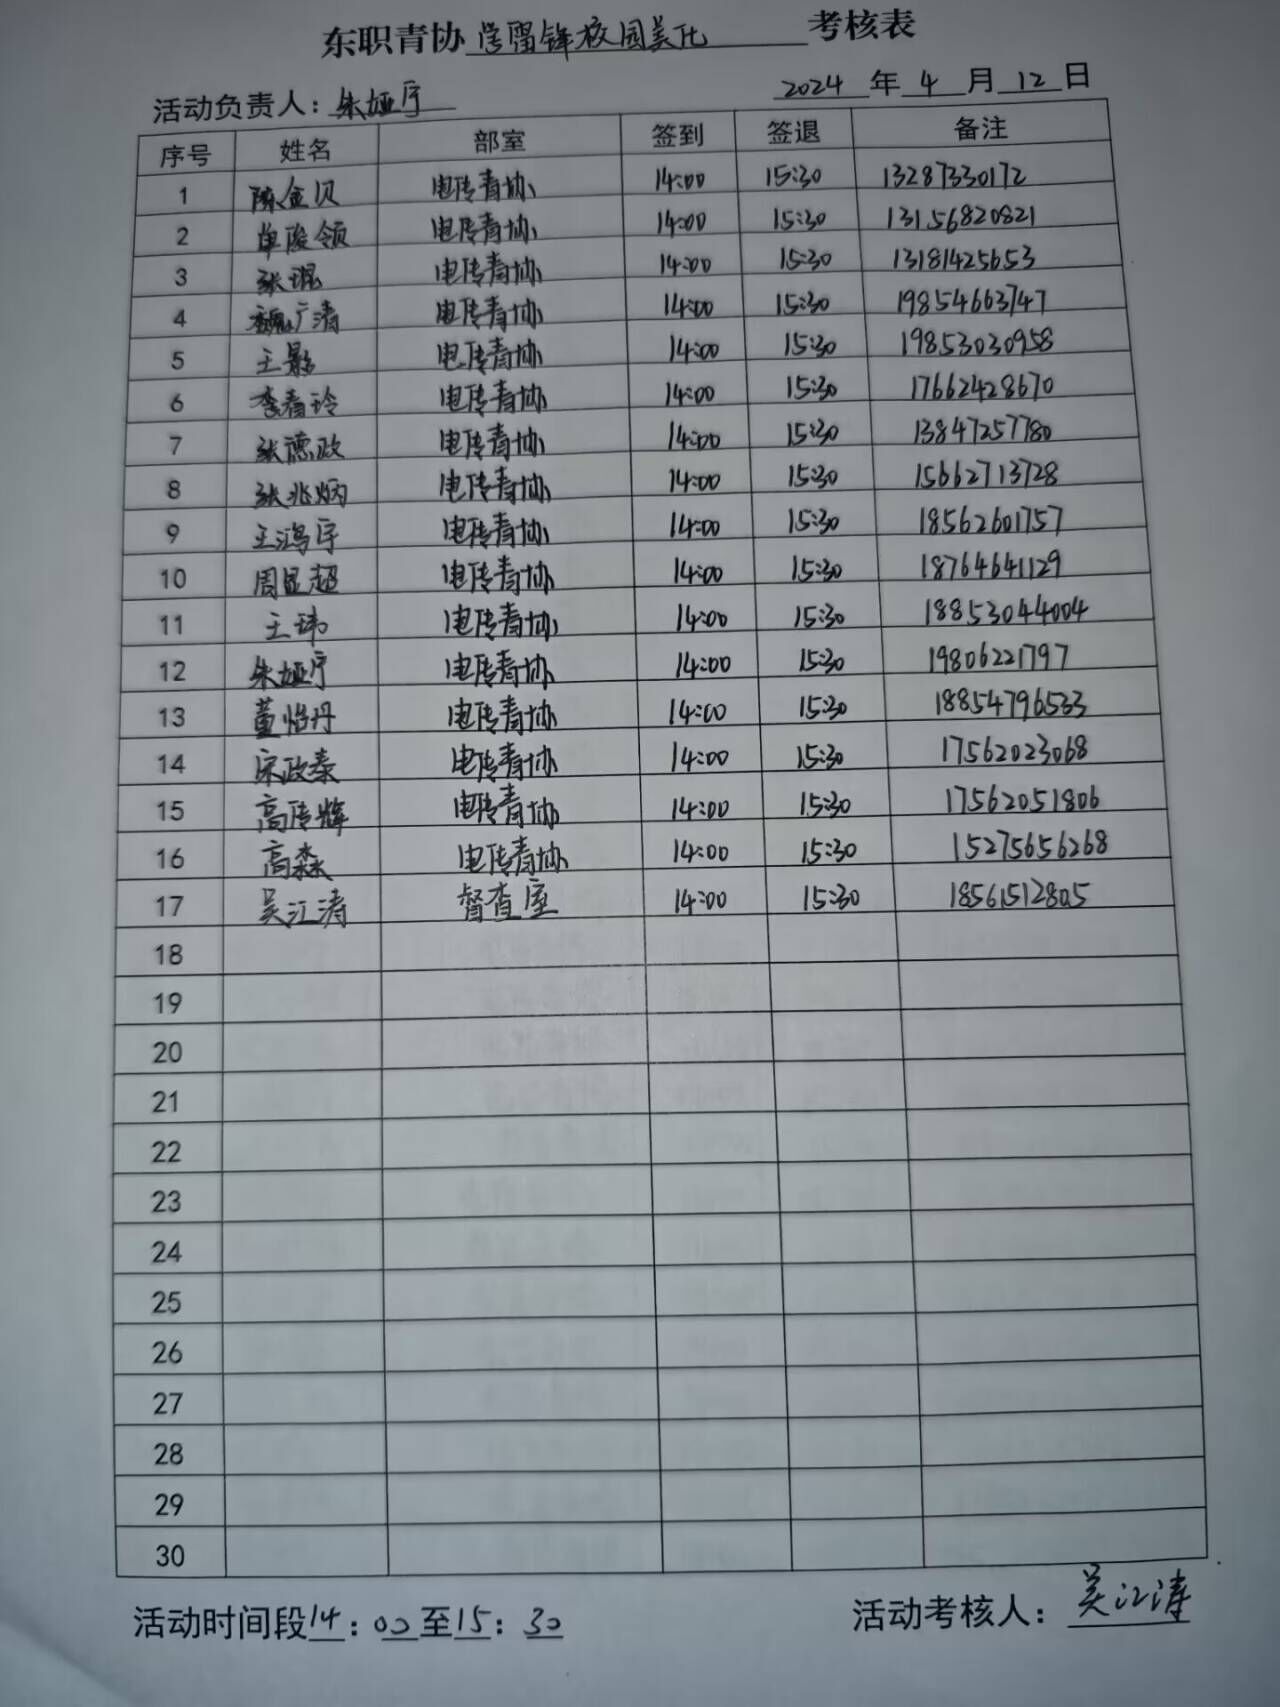 东职青协学雷锋校园美化考核表
活动负责人：朱娅宁 2024年4月12日
序号 姓名 部室 签到 签退 备注
1 陈金贝 电传青协 14:00 15:30 13287330172
2 单俊领 电传青协 14:00 15:30 13156820821
3 张琨 电传青协 14:00 15:30 13181425653
4 魏广清 电传青协 14:00 15:30 19854663747
5 王影 电传青协 14:00 15:30 19853030958
6 李春玲 电传青协 14:00 15:30 17662428670
7 张德政 电传青协 14:00 15:30 13847257780
8 张兆炳 电传青协 14:00 15:30 15662713728
9 王鸿宇 电传青协 14:00 15:30 18562601757
10 周显超 电传青协 14:00 15:30 18764641129
11 王玮 电传青协 14:00 15:30 18853044004
12 朱娅宁 电传青协 14:00 15:30 19806221797
13 董怡丹 电传青协 14:00 15:30 18854796533
14 宋政泰 电传青协 14:00 15:30 17562023068
15 高传辉 电传青协 14:00 15:30 17562051806
16 高淼 电传青协 14:00 15:30 15275656268
17 吴江涛 督查室 14:00 15:30 18561512805
18
19
20
21
22
23
24
25
26
27
28
29
30
活动时间段14：00至15：30 活动考核人：吴江涛